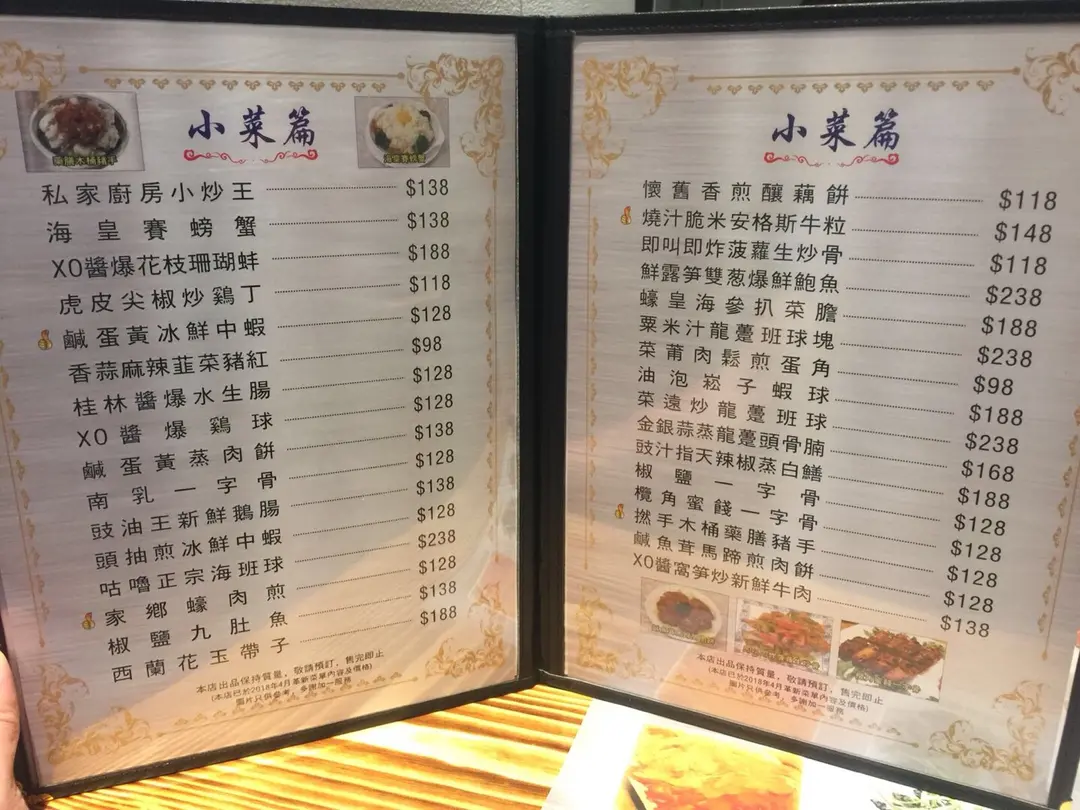 小菜篇
私家廚房小炒王 $138
海皇賽螃蟹 $138
XO醬爆花枝珊瑚蚌 $188
虎皮尖椒炒鷄丁 $118
鹹蛋黃冰鮮中蝦 $128
香蒜麻辣韮菜豬紅 $98
桂林醬爆水生腸 $128
XO醬爆鷄球 $128
鹹蛋黃蒸肉餅 $138
南乳一字骨 $128
豉油王新鮮鵝腸 $138
頭抽煎冰鮮中蝦 $128
咕嚕正宗海班球 $238
家鄉蠔肉煎 $128
椒鹽九肚魚 $138
西蘭花玉帶子 $188
本店出品保持質量，敬請預訂，售完即止
(本店已於2018年4月革新菜單內容及價格)
圖片只供參考，多謝加一服務
小菜篇
懷舊香煎釀藕餅 $118
燒汁脆米安格斯牛粒 $148
即叫即炸菠蘿生炒骨 $118
鮮露笋雙葱爆鮮鮑魚 $238
蠔皇海參扒菜膽 $188
粟米汁龍躉班球塊 $238
菜莆肉鬆煎蛋角 $98
油泡崧子蝦球 $188
菜遠炒龍躉班球 $238
金銀蒜蒸龍躉頭骨腩 $168
豉汁指天辣椒蒸白鱔 $188
椒鹽一字骨 $128
欖角蜜餞一字骨 $128
撚手木桶藥膳豬手 $128
鹹魚茸馬蹄煎肉餅 $128
XO醬窩笋炒新鮮牛肉 $138
本店出品保持質量，敬請預訂，售完即止
(本店已於2018年4月革新菜單內容及價格)
圖片只供參考，多謝加一服務